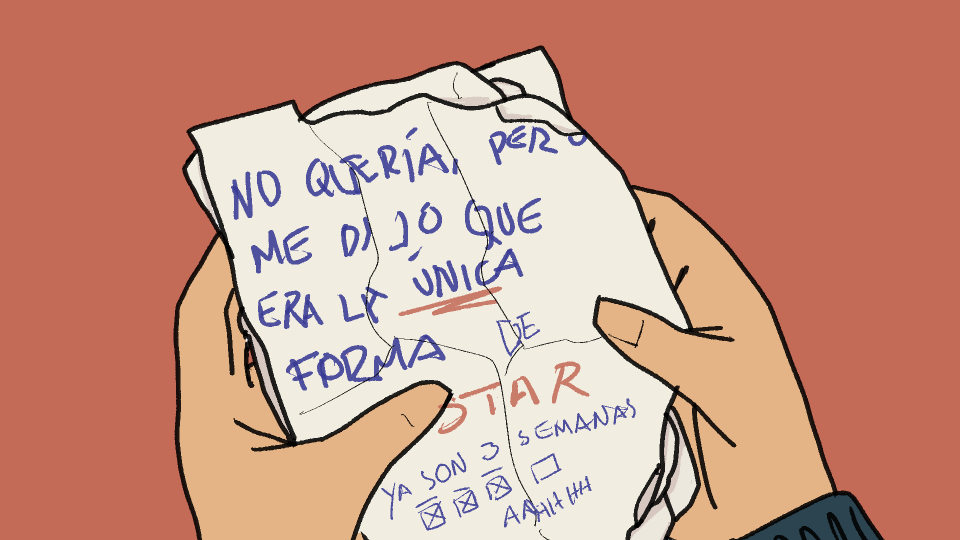 NO QUERÍA, PERO
ME DIJO QUE
ERA LA ÚNICA
FORMA DE
STAR
YA SON 3 SEMANAS
AAHHHH